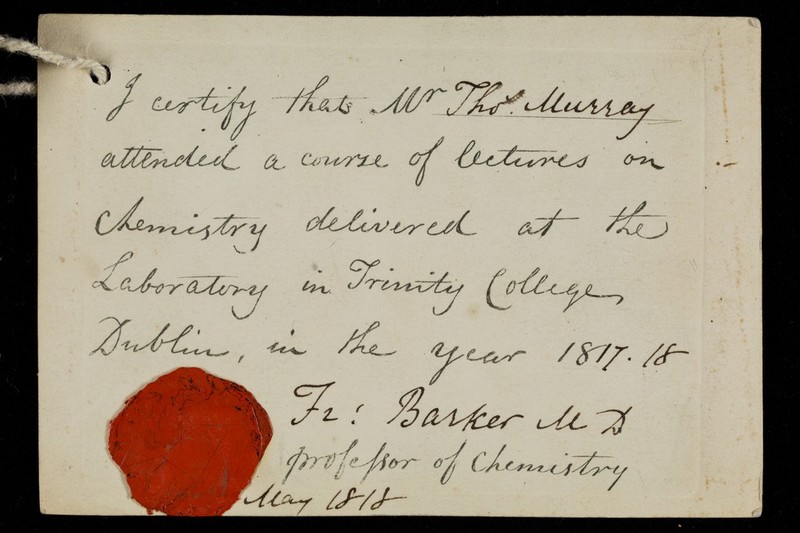 I certify that Mr Thos. Murray
attended a course of lectures on
Chemistry delivered at the
Laboratory in Trinity College
Dublin, in the year 1817.18
Fr: Barker M D
professor of Chemistry
May 1818